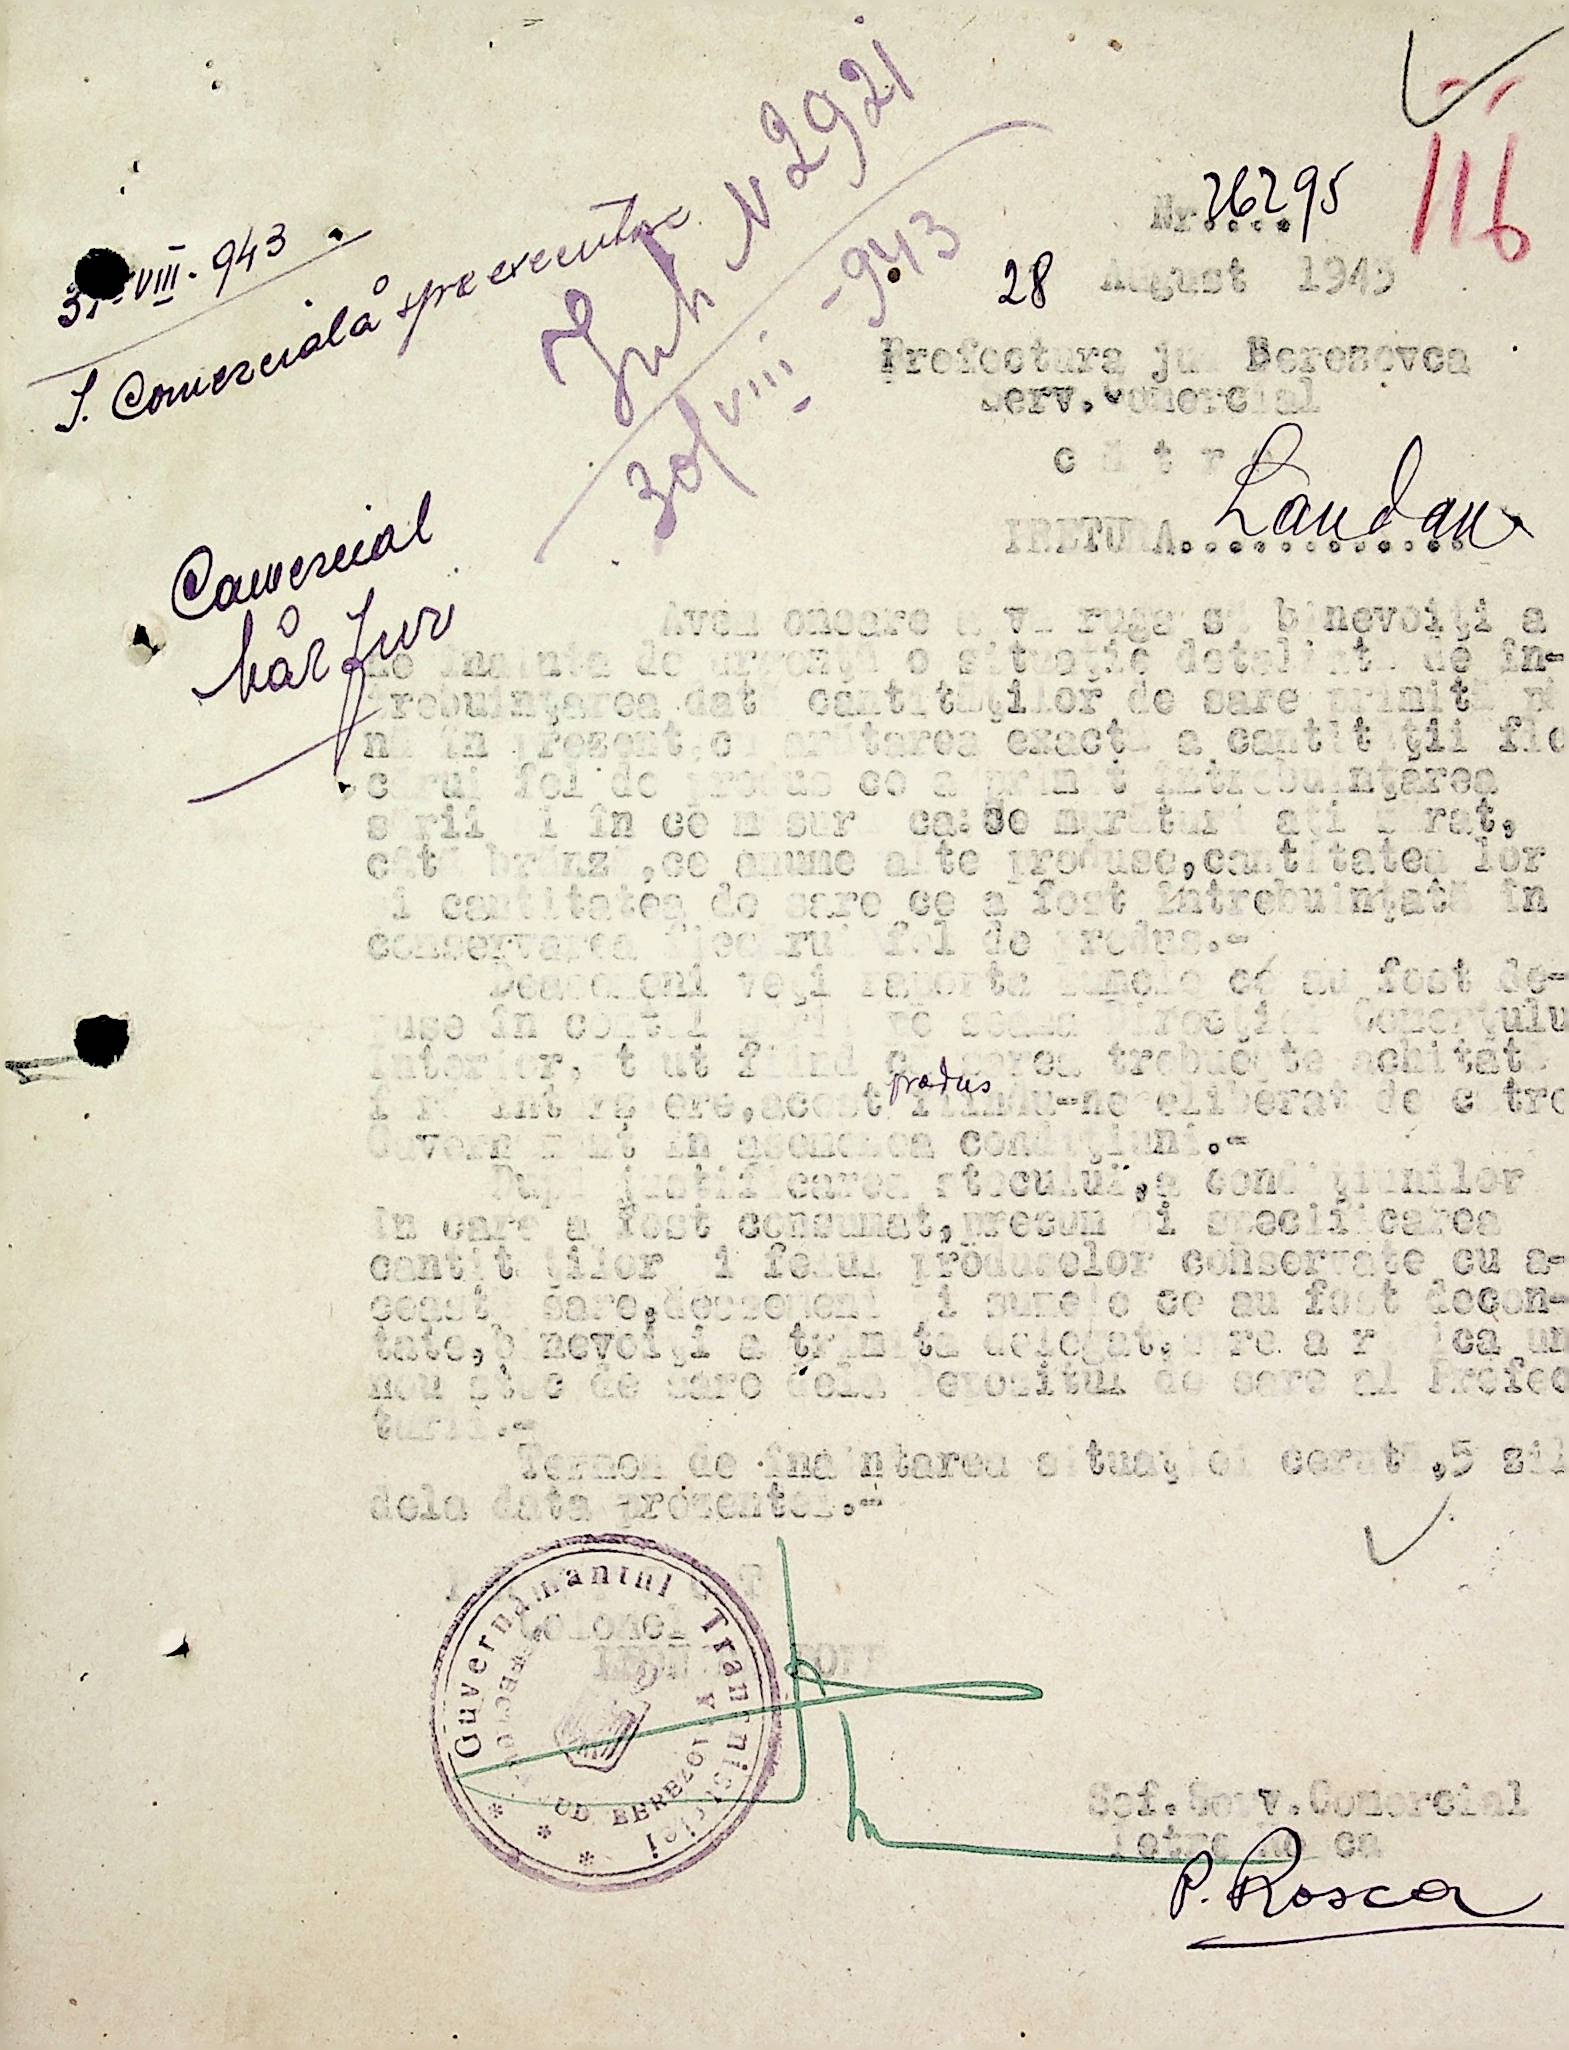 116
Nr. 26295
28 August 1943
Int N 2921
30/VIII -943
31-VIII-943
S. Comercială spre executare
Prefectura jud Berezovca
Serv. Comercial
către
PRETURA Landau
Comercial
Avem onoare a vă ruga să binevoiți a
ne înainta de urgență o situație detaliată de în-
trebuințarea dată cantităților de sare primită pâ
nă în prezent, cu arătarea exactă a cantității fie
cărui fel de produs ce a primit întrebuințarea
sării și în ce măsură ca: Ce murături ați sărat,
câtă brânză, ce anume alte produse, cantitatea lor
și cantitatea de sare ce a fost întrebuințată în
conservarea fiecărui fel de produs.-
Deasemeni veți raporta sumele ce au fost de-
puse în contul sării pe seama Direcției Comerțului
Interior, știut fiind că sarea trebuește achitată
fără întârziere, acest produs fiindu-ne eliberat de către
Guvernământ în asemenea condițiuni.-
După justificarea stocului, a condițiunilor
în care a fost consumat, precum și specificarea
cantităților și felul produselor conservate cu a-
ceastă sare, deasemeni și sumele ce au fost decon-
tate, binevoiți a trimite delegat, spre a ridica un
nou stoc de sare dela Depozitul de sare al Prefec
turii.-
Termen de înaintarea situației cerută, 5 zil
dela data prezentei.-
Colonel
Guvernământul Transnistriei
JUD BEREZOVCA
Șef. Serv. Comercial
Petre Roșca
P. Rosca